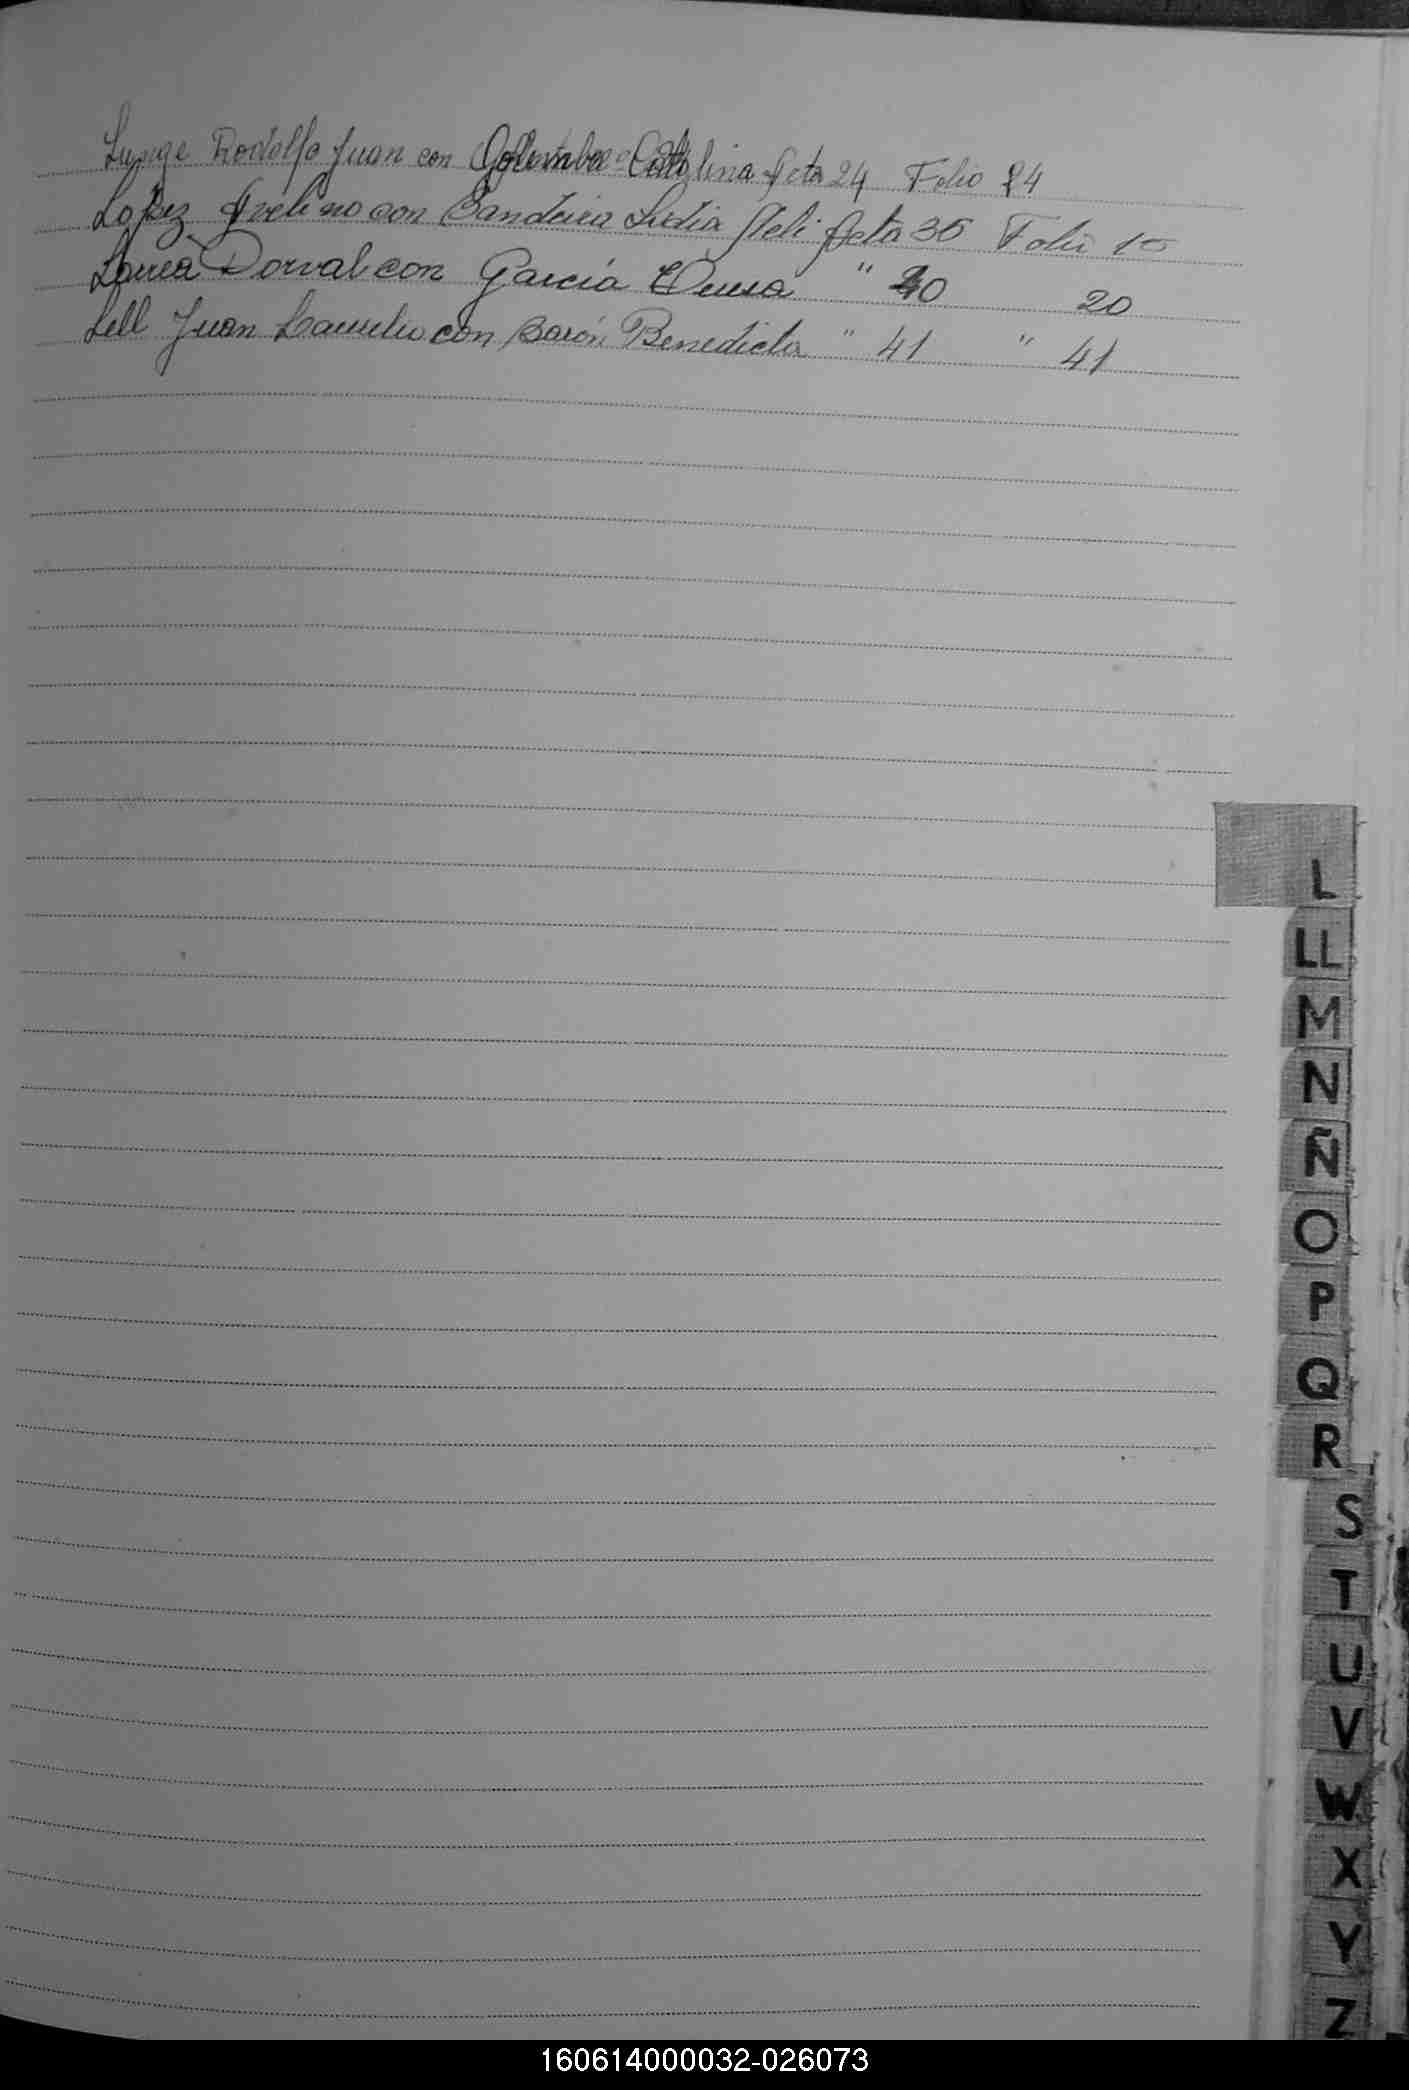 Lunge Rodolfo Juan con Colombo Catalina Acta 24 Folio 24
Lopez Avelino con Bandeira Lidia Neli Acta 36 Folio 15
Larrea Dorval con García Elena " 40 20
Lell Juan con Barón Benedicta " 41 " 41
L
LL
M
N
Ñ
O
P
Q
R
S
T
U
V
W
X
Y
Z
160614000032-026073